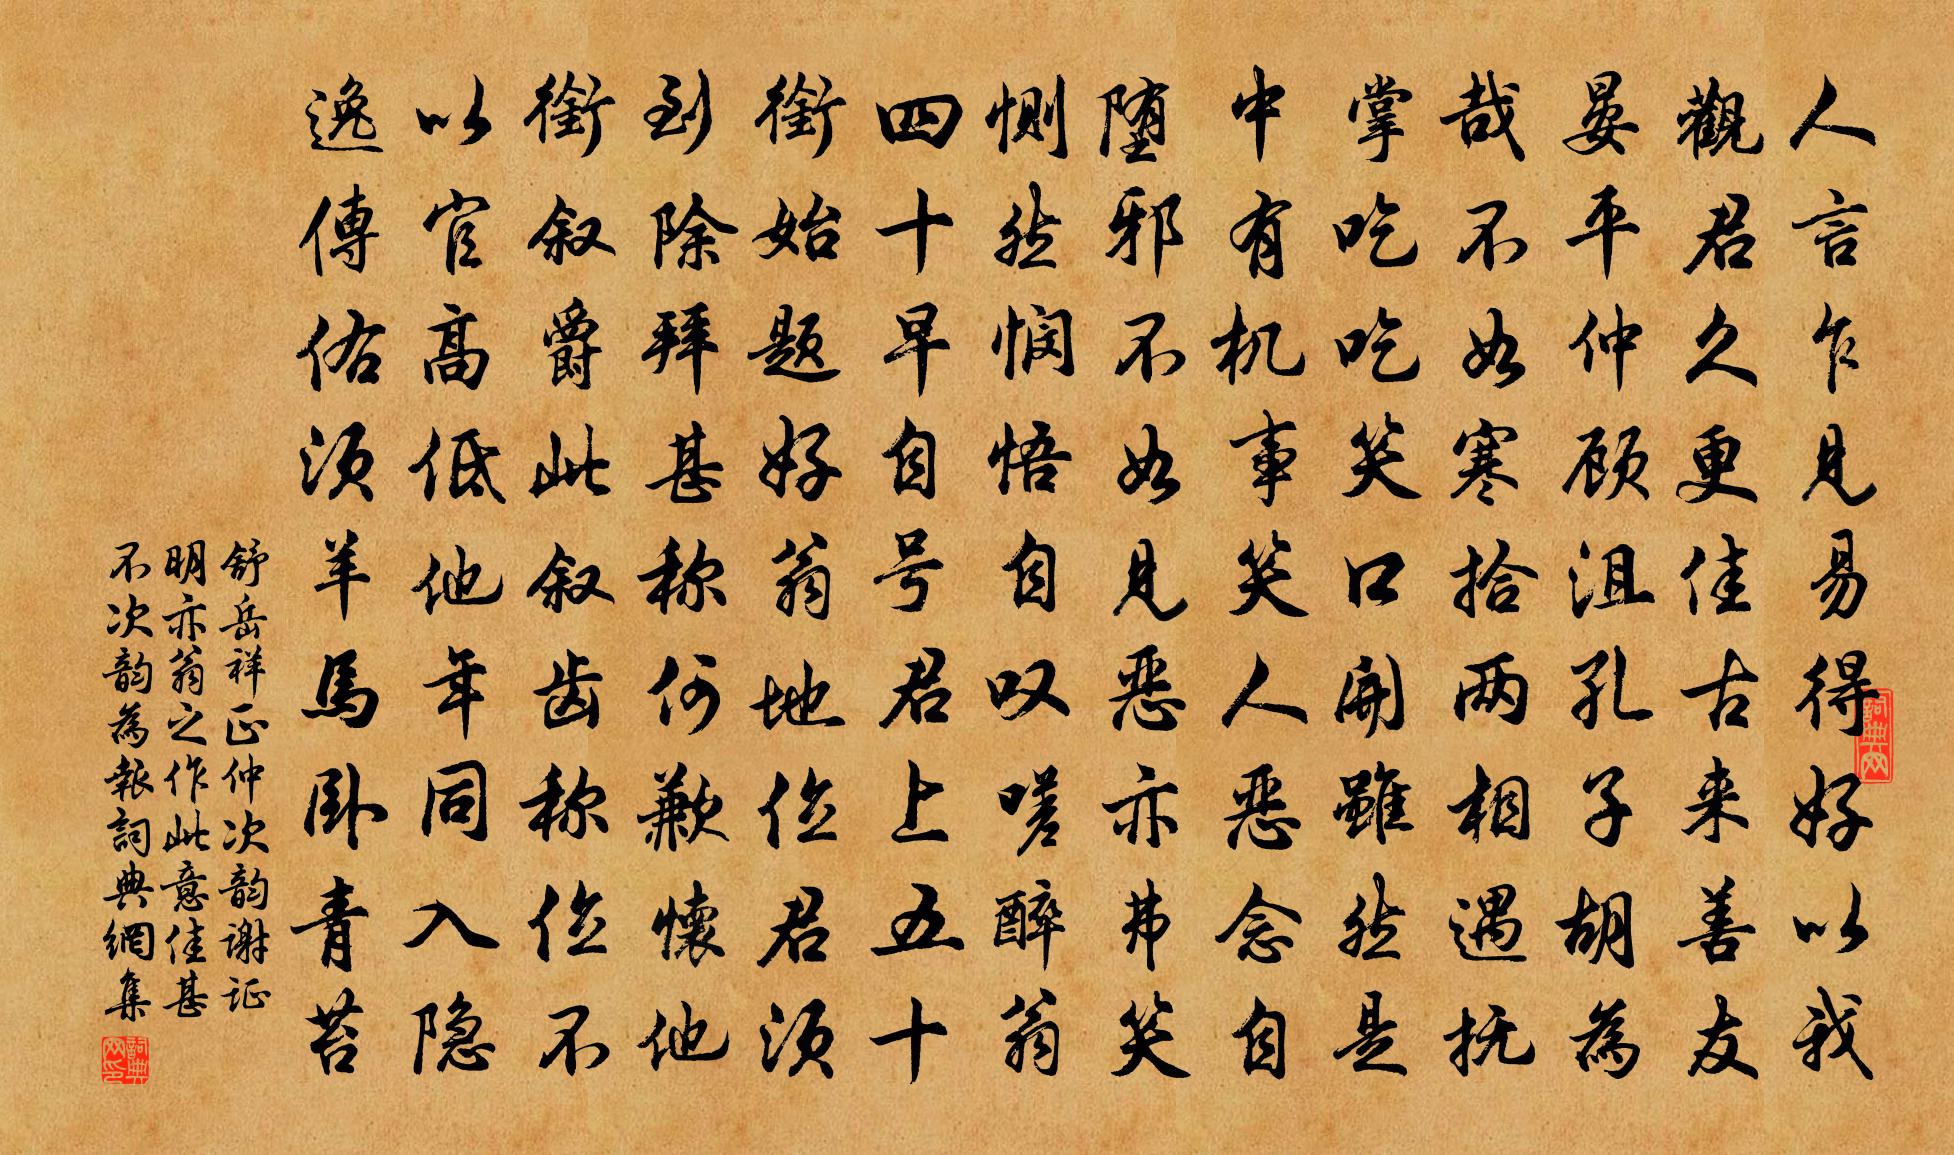 人言乍見易得好以我
觀君久更佳古来善友
晏平仲顾沮孔子胡為
哉不如寒拾两相遇抚
掌吃吃笑口開雖然是
中有机事笑人恶念自
堕邪不如見恶亦弗笑
惻然悯悟自叹嗟醉翁
四十早自号君上五十
銜始题好翁地位君须
到除拜甚称何歉懷他
銜叙爵此叙齿称位不
以官高低他年同入隐
逸傳佑须羊馬卧青苔
舒岳祥正仲次韵谢证
明亦翁之作此意佳甚
不次韵為報詞典網集
詞典网
詞典网印